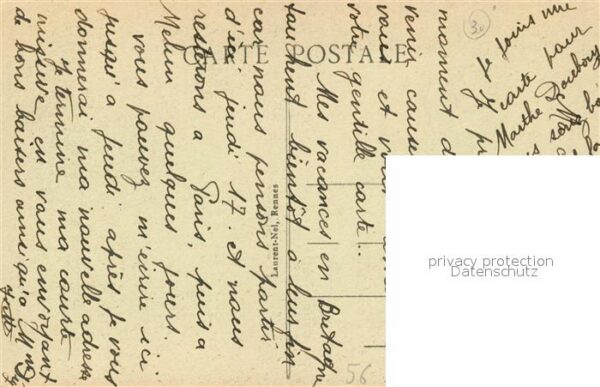 Je joins une
carte pour
Marthe
Je pr
moment d
venir cause
vous et v
votre gentille carte.
Mes vacances en Bretagne
touchent bientôt à leur fin
car nous pensons partir
d'ici jeudi 17. et nous
resterons a Paris, puis a
Melun quelques jours.
vous pouvez m'écrire ici
jusqu'a jeudi après je vous
donnerai ma nouvelle adresse
Je termine ma courte
missive en vous envoyant
de bons baisers ainsi qu'a Mme
CARTE POSTALE
Laurent-Nel, Rennes
30
56
privacy protection
Datenschutz